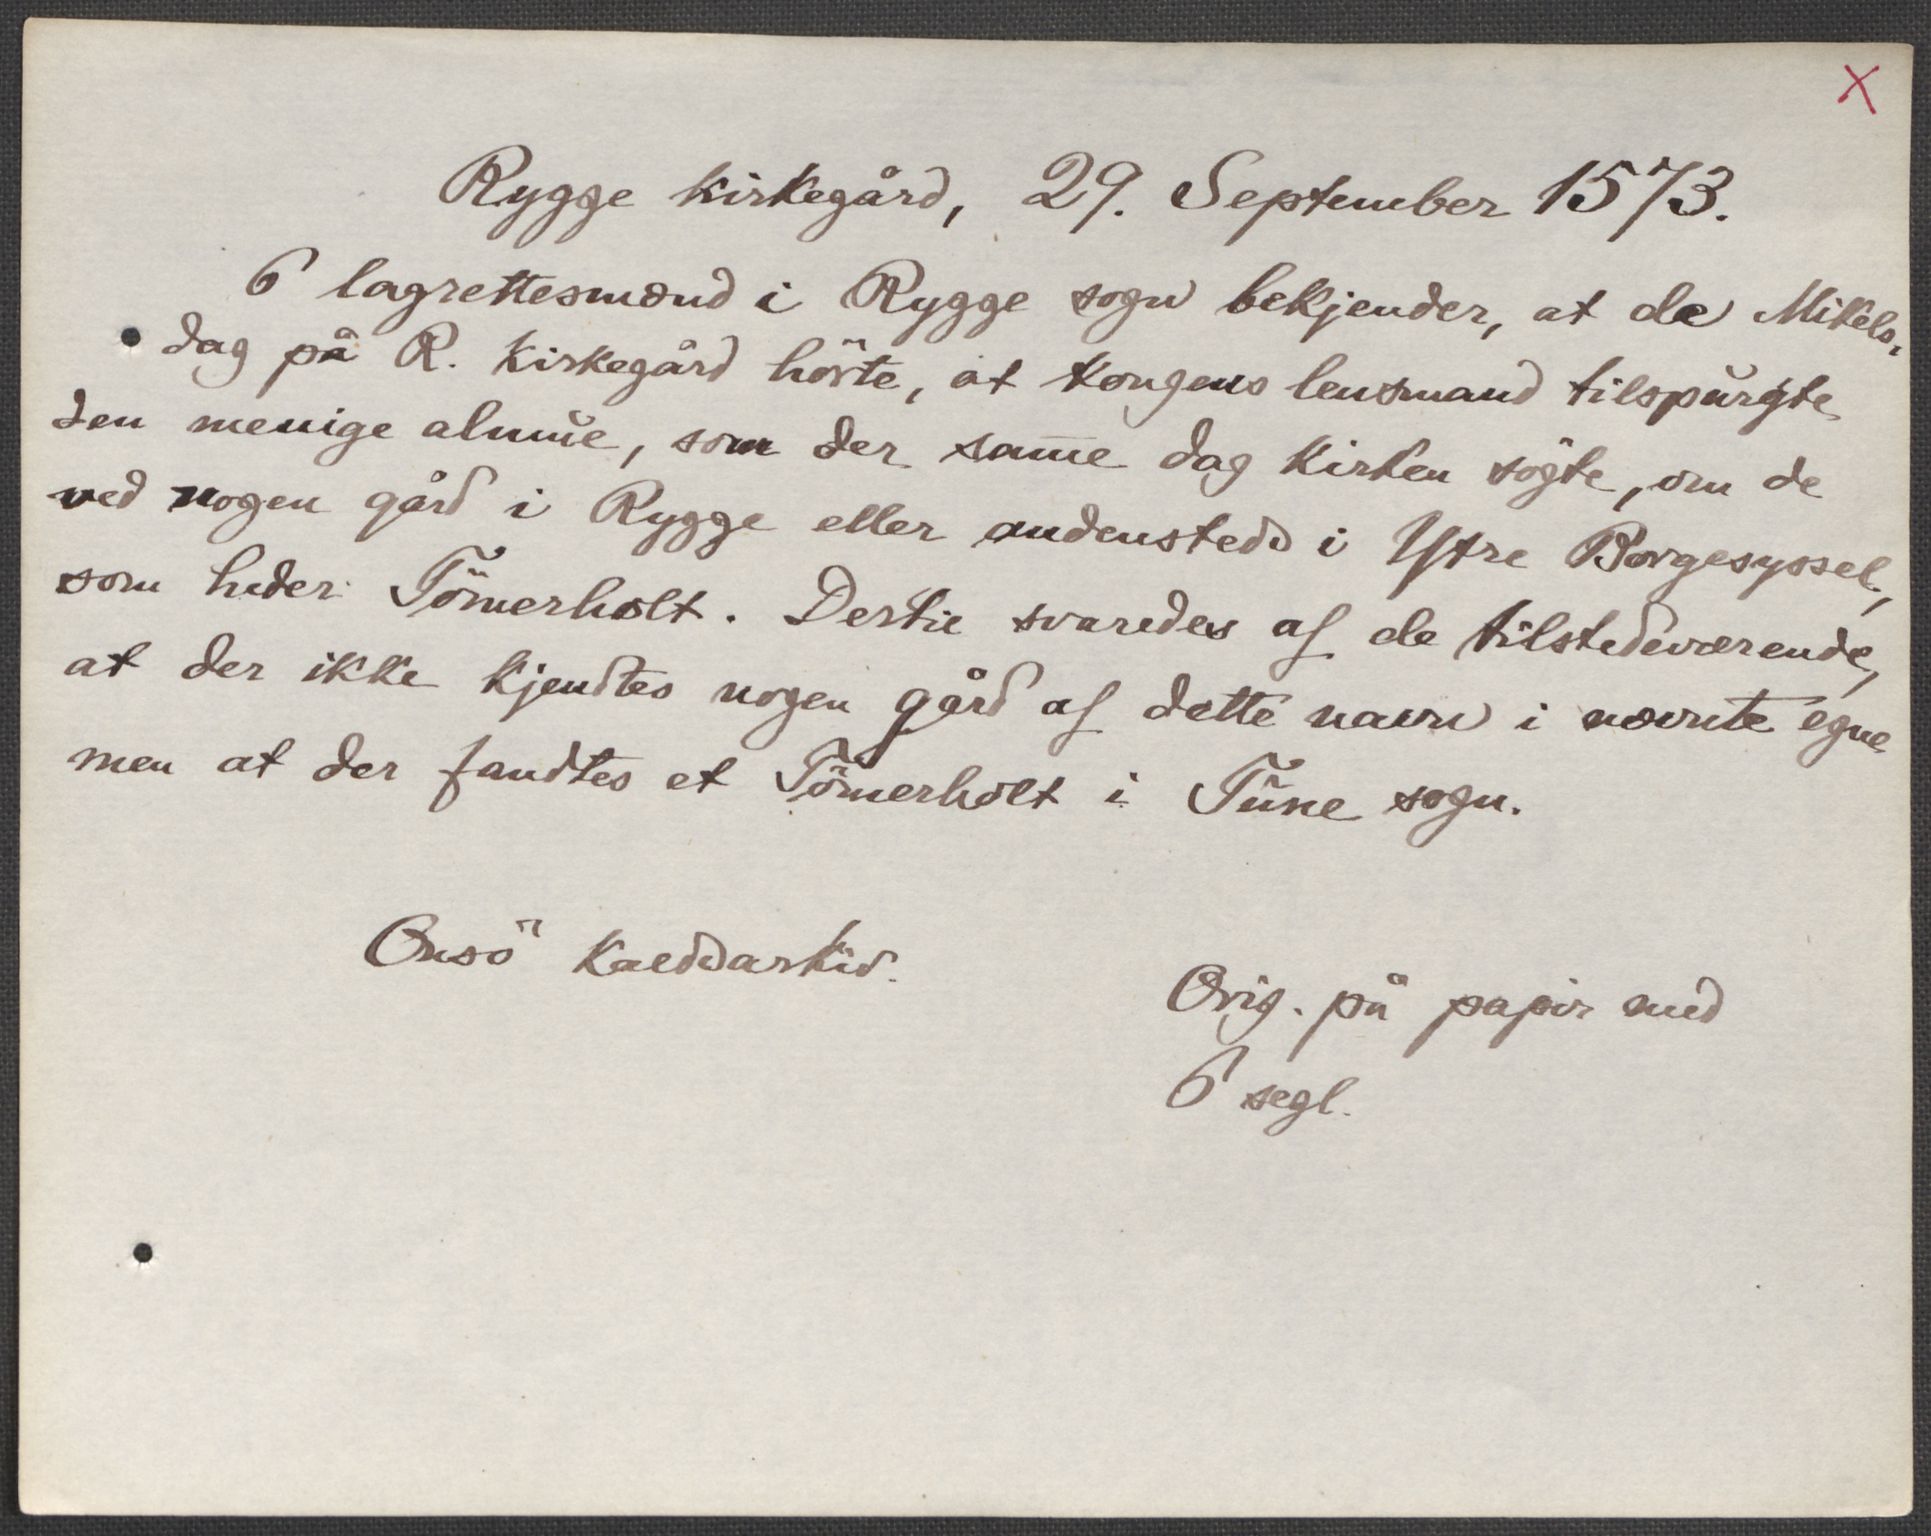 X
Rygge kirkegård, 29. September 1573.
6 lagrettesmænd i Rygge sogn bekjender, at de Mikels-
dag på R. kirkegård hörte, at kongens lensmand tilspurgte
den menige almue, som der same dag kirken sögte, om de
ved nogen gård i Rygge eller andensteds i Ytre Borgesyssel,
som heder Tömerholt. Dertil svaredes af de tilstedeværende,
at der ikke kjendtes nogen gård af dette navn i nævnte egne
men at der fandtes et Tömerholt i Tune sogn.
Onsö
Orig. på papir med
6 segl.